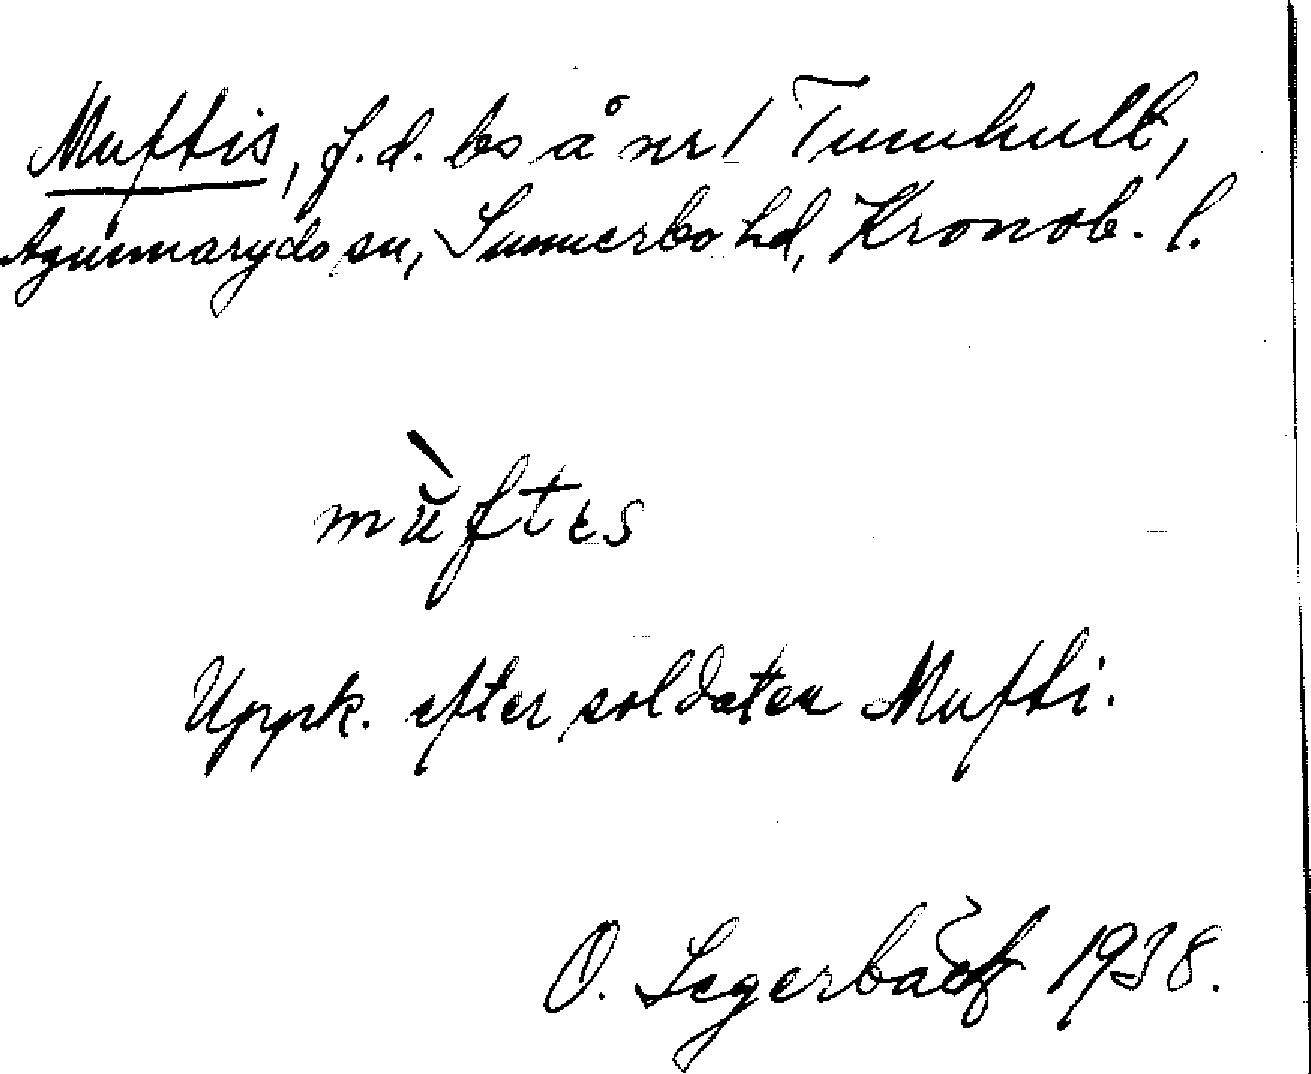 Muftis, f.d. bs å nr 1 Tumhult,
Agunnaryds sn, Sunnerbo hd, Kronob. l.
mùftes
Uppk. efter soldaten Mufti.
O. Segerbäck 1938.